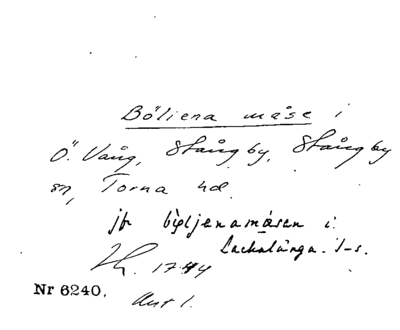 Böliena måse i
Ö. Vång, Stångby, Stångby
sn, Torna hd.
jfr böljenamåsen i
Lackalänga. J-s.
Lm. 1744
Nr 6240. Akt 1.